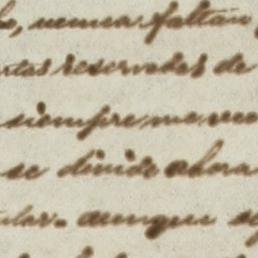 nunca faltan
reservados de
siempre me
se divide ahora
aunque